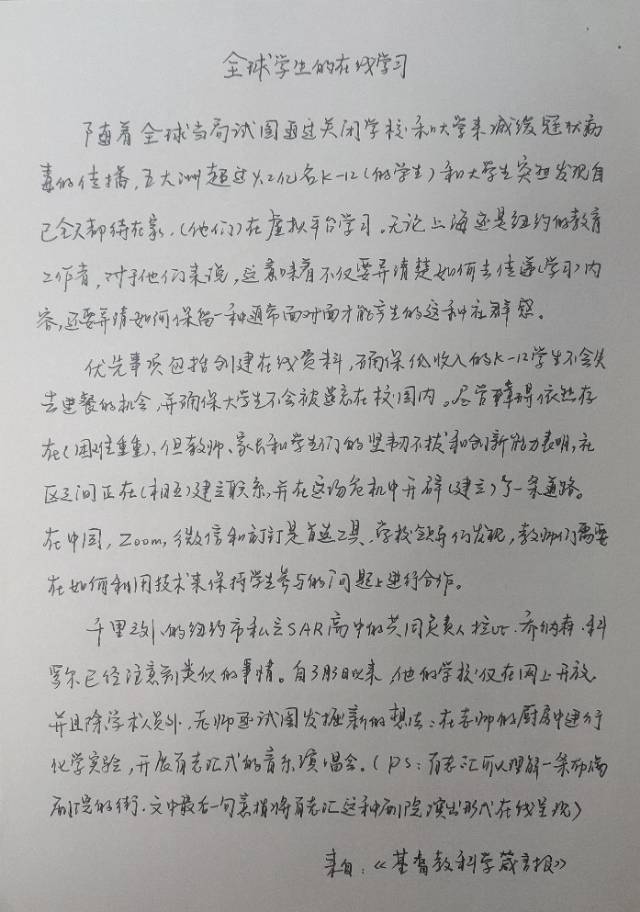 全球学生的在线学习
随着全球当局试图通过关闭学校和大学来减缓冠状病
毒的传播，五大洲超过4.2亿名K-12(的学生)和大学生突然发现自
己全天都待在家，(他们)在虚拟平台学习。无论上海还是纽约的教育
工作者，对于他们来说，这意味着不仅要弄清楚如何去传递(学习)内
容，还要弄清如何保留一种通常面对面才能产生的这种社群感。
优先事项包括创建在线资料，确保低收入的K-12学生不会失
去进餐的机会，并确保大学生不会被遗忘在校园内。尽管障碍依然存
在(困难重重)，但教师、家长和学生们的坚韧不拔和创新能力表明，社
区之间正在(相互)建立联系，并在这场危机中开辟(建立)了一条道路。
在中国，Zoom，微信和钉钉是首选工具，学校领导们发现，教师们需要
在如何利用技术来保持学生参与的问题上进行合作。
千里之外的纽约市私立SAR高中的共同负责人拉比·乔纳森·科
罗尔已经注意到类似的事情。自3月3日以来，他的学校仅在网上开放，
并且除学术人员外，老师还试图发掘新的想法：在老师的厨房中进行
化学实验，开展百老汇式的音乐演唱会。(PS：百老汇可以理解一条布满
剧院的街，文中最后一句意指将百老汇这种剧院演出形式在线呈现)
来自：《基督教科学箴言报》